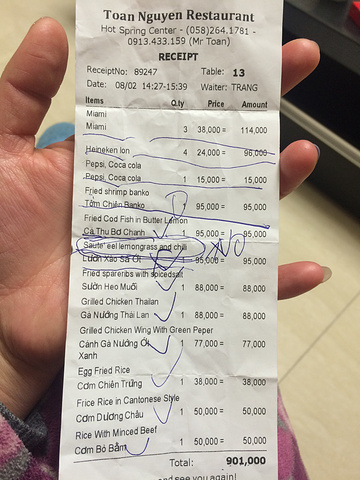 Toan Nguyen Restaurant
Hot Spring Center - (058)264.1781 -
0913.433.159 (Mr Toan)
RECEIPT
ReceiptNo: 89247 Table: 13
Date: 08/02 14:27-15:39 Waiter: TRANG
Items Q.ty Price Amount
Miami
Miami 3 38,000= 114,000
Heineken lon 4 24,000= 96,000
Pepsi, Coca cola
Pepsi, Coca cola 1 15,000= 15,000
Fried shrimp banko
Tôm Chiên Banko 1 95,000= 95,000
Fried Cod Fish in Butter Lemon
Cá Thu Bơ Chanh 1 95,000= 95,000
Saute' eel lemongrass and chili NO
Lươn Xào Sả Ớt 1 95,000= 95,000
Fried spareribs with spicedsalt
Sườn Heo Muối 1 88,000= 88,000
Grilled Chicken Thailan
Gà Nướng Thái Lan 1 88,000= 88,000
Grilled Chicken Wing With Green Peper
Cánh Gà Nướng Ớt 1 77,000= 77,000
Xanh
Egg Fried Rice
Cơm Chiên Trứng 1 38,000= 38,000
Frice Rice in Cantonese Style
Cơm Dương Châu 1 50,000= 50,000
Rice With Minced Beef
Cơm Bò Bằm 1 50,000= 50,000
Total: 901,000
and see you again!